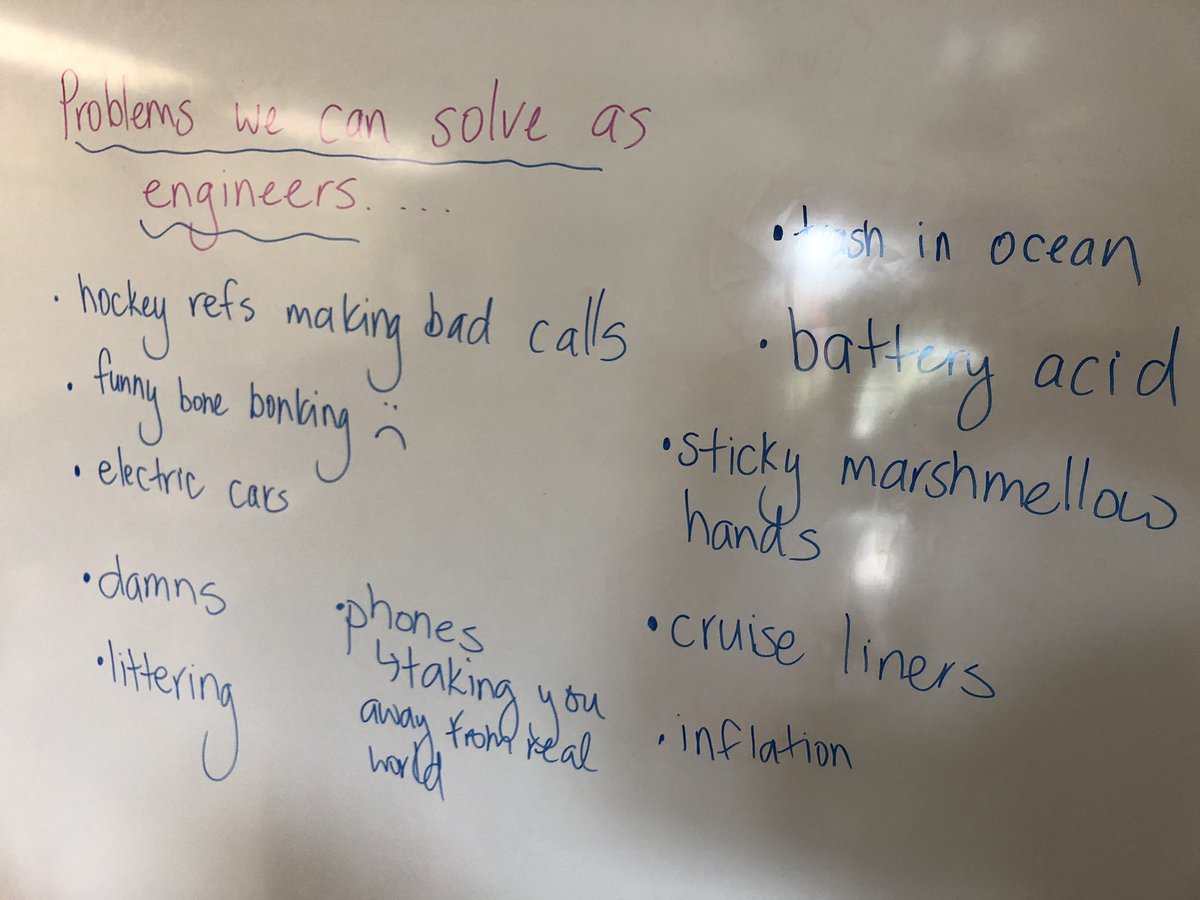 Problems we can solve as
engineers. . . .
· hockey refs making bad calls
· funny bone bonking :(
· electric cars
· damns
· littering
· phones
↳ taking you
away from real
world
· trash in ocean
· battery acid
· sticky marshmellow
hands
· cruise liners
· inflation